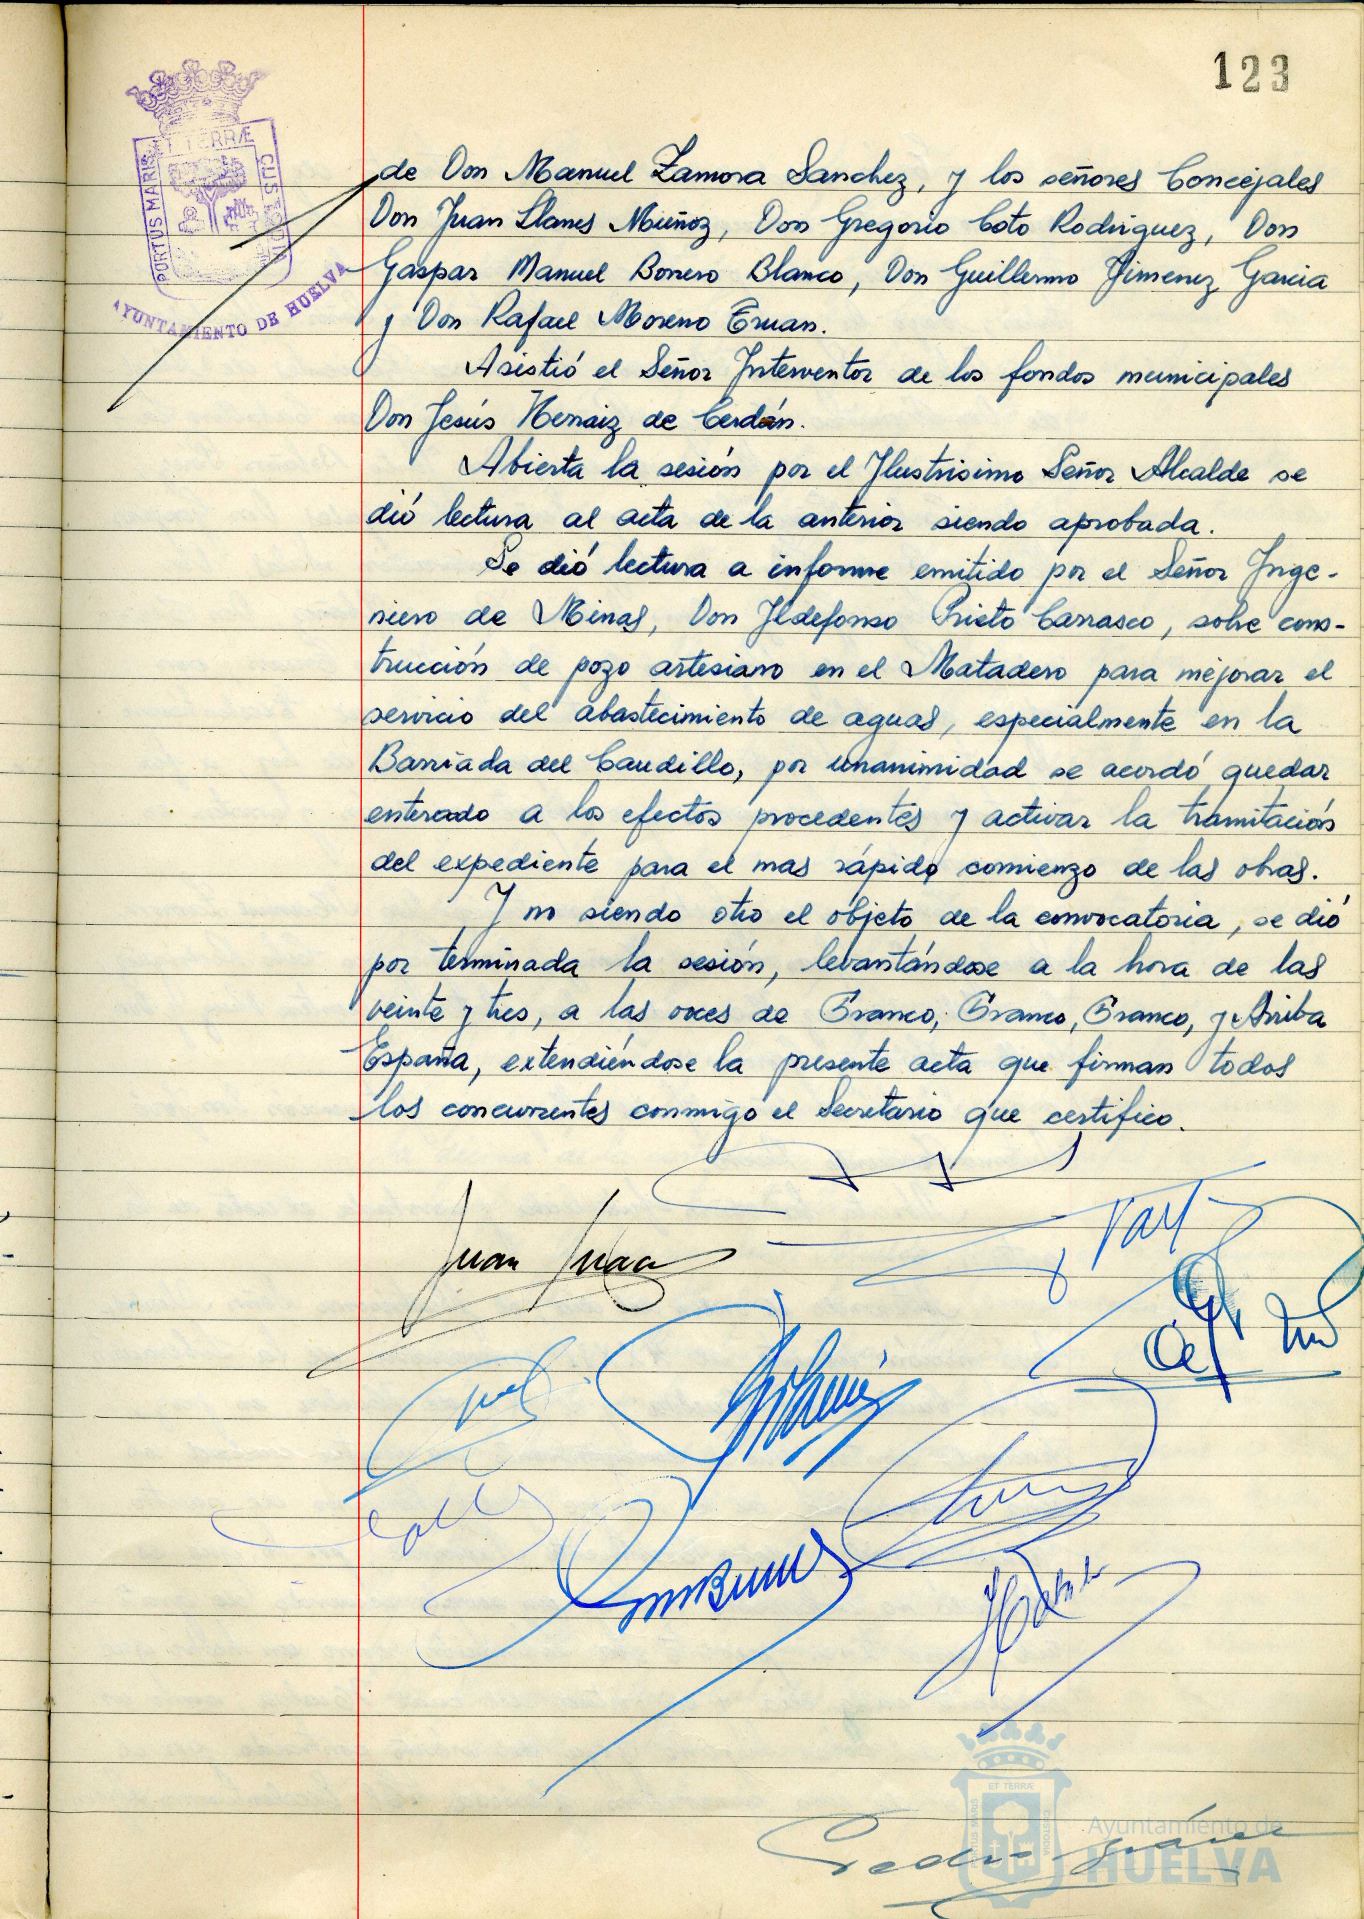 123
PORTUS MARIS ET TERRÆ CUSTODIA
AYUNTAMIENTO DE HUELVA
de Don Manuel Zamora Sanchez, y los señores Concejales
Don Juan Llanes Muñoz, Don Gregorio Coto Rodriguez, Don
Gaspar Manuel Borrero Blanco, Don Guillermo Jimenez Garcia
y Don Rafael Moreno Eruan.
Asistió el Señor Interventor de los fondos municipales
Don Jesús Herraiz de Cerdán.
Abierta la sesión por el Ilustrisimo Señor Alcalde se
dió lectura al acta de la anterior siendo aprobada.
Se dió lectura a informe emitido por el Señor Inge-
niero de Minas, Don Ildefonso Prieto Carrasco, sobre cons-
trucción de pozo artesiano en el Matadero para mejorar el
servicio del abastecimiento de aguas, especialmente en la
Barriada del Caudillo, por unanimidad se acordó quedar
enterado a los efectos procedentes y activar la tramitación
del expediente para el mas rápido comienzo de las obras.
Y no siendo otro el objeto de la convocatoria, se dió
por terminada la sesión, levantándose a la hora de las
veinte y tres, a las voces de Franco, Franco, Franco, y Arriba
España, extendiéndose la presente acta que firman todos
los concurrentes conmigo el Secretario que certifico.
Juan
Pedro
ET TERRÆ
PORTUS MARIS
CUSTODIA
Ayuntamiento de
HUELVA